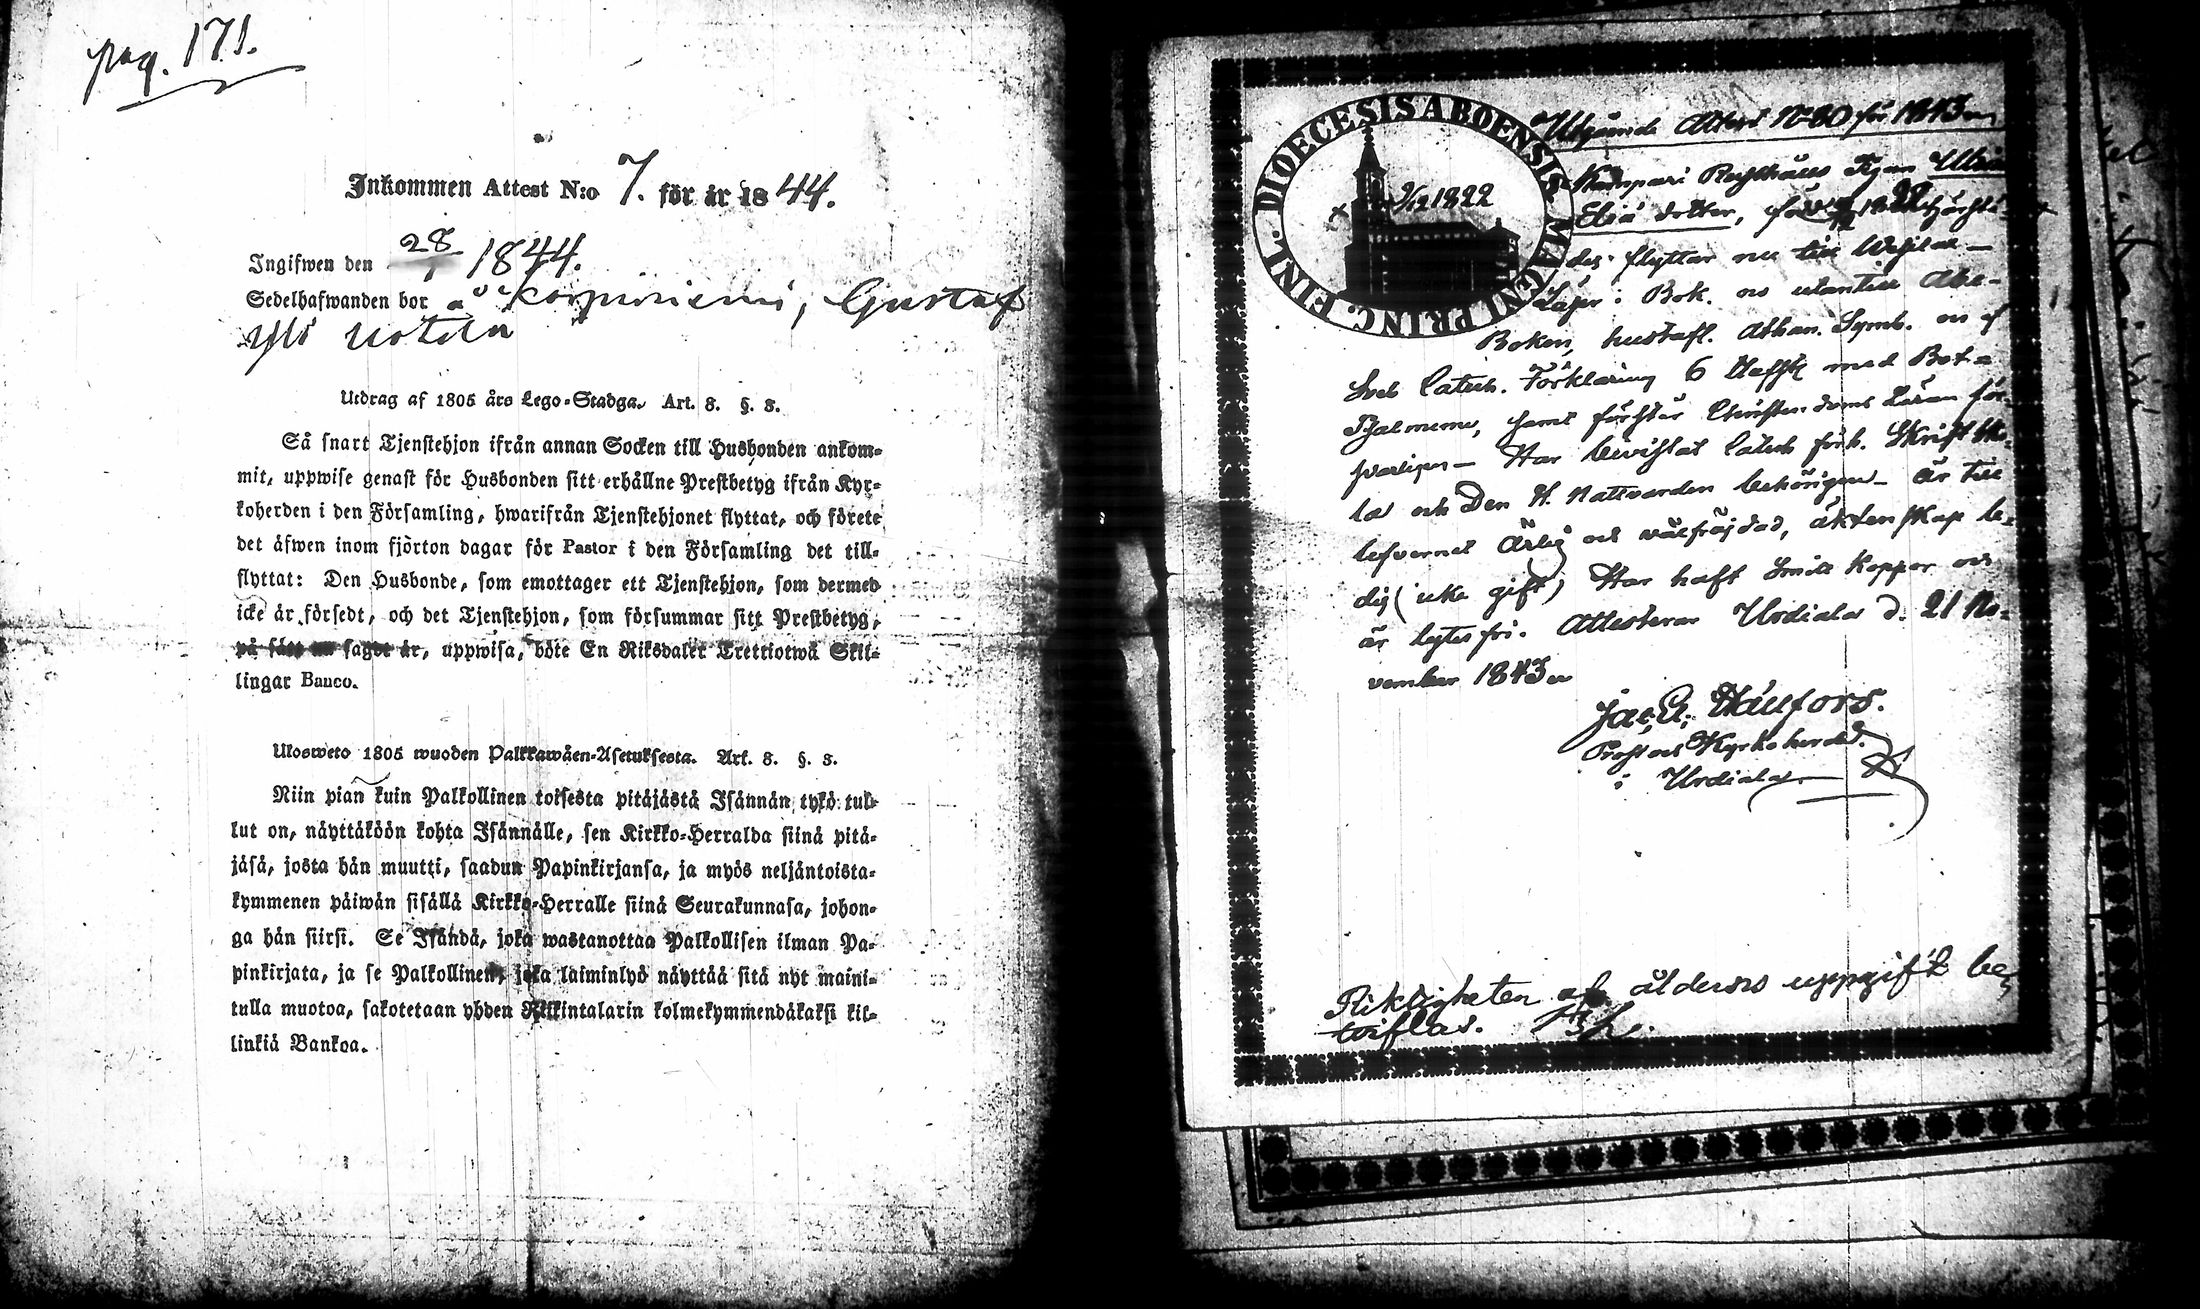 pag. 171.
Inkommen Attest N:o 7. för år 1844.
Ingifwen den 28/1 1844.
Sedelhafwanden bor å Korpiniemi, Gustaf
Yli Uotila
Utdrag af 1805 års Lego-Stadga. Art. 3. §. 3.
Så snart Tjenstehjon ifrån annan Socken till Husbonden ankom-
mit, uppwise genast för Husbonden sitt erhållne Prestbetyg ifrån Kyr-
koherden i den Församling, hwarifrån Tjenstehjonet flyttat, och förete
det äfwen inom fjorton dagar för Pastor i den Församling det till-
flyttat: Den Husbonde, som emottager ett Tjenstehjon, som dermed
icke är försedt, och det Tjenstehjon, som försummar sitt Prestbetyg,
på sätt sagdt är, uppwisa, böte En Riksdaler Trettiotwå Skil-
lingar Banco.
Ulosweto 1805 wuoden Palkkawäen-Asetuksesta. Art. 3. §. 3.
Niin pian kuin Palkollinen toisesta pitäjästä Isännän tykö tul-
lut on, näyttäköön kohta Isännälle, sen Kirkko-Herralda siinä pitä-
jäsä, josta hän muutti, saadun Papinkirjansa, ja myös neljäntoista-
kymmenen päiwän sisällä Kirkko-Herralle siinä Seurakunnasa, johon-
ga hän siirsi. Se Isändä, joka wastanottaa Palkollisen ilman Pa-
pinkirjata, ja se Palkollinen, joka laiminlyö näyttää sitä nyt maini-
tulla muotoa, sakotetaan yhden Riikintalarin kolmekymmendäkaksi kil-
linkiä Bankoa.
DIOECESIS ABOENSIS MAGNI PRINC. FINL.
9/12 1822
Utgående Attest N:o 80 för 1843
Kampari Rusthålls Pigan Ulrica
Elia dotter, född 1822
flyttar nu till
Läser i Bok. och utantill Abc-
Boken, hustafl. Athan. Symb. och af
Sveb. Catech. Förklaring 6 med Bot-
Psalmerne, samt förstår Christendoms Läran för-
svarligen - Har bevistat Catech. förh. Skriftsko-
la och Den H. Nattvarden behörigen - Är till
lefvernet Ärlig och välfräjdad, äktenskap le-
dig (icke gift) Har haft Smitt koppor och
är lytesfri. Attesteras Urdiala d. 21 No-
vember 1843
Jac. Hällfors.
Prost och Kyrkoherde
i Urdiala
Riktigheten af ålderns uppgift be-